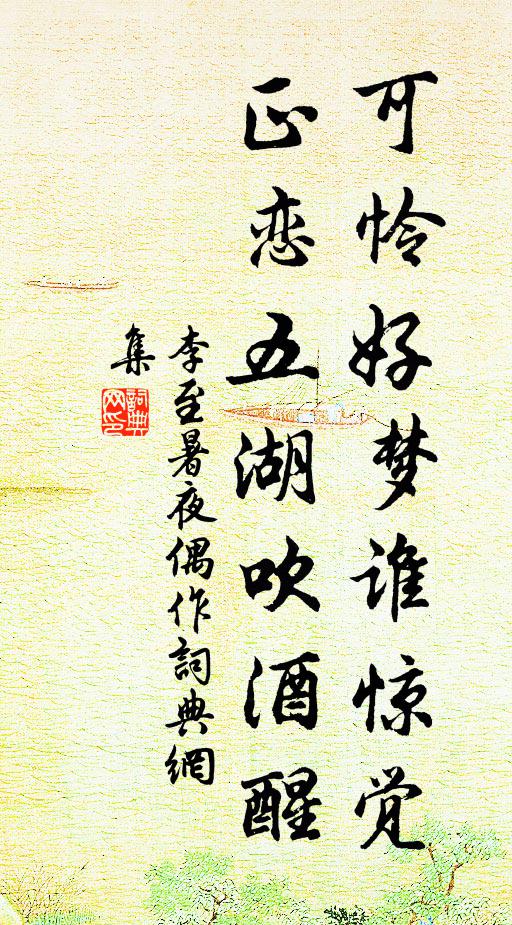 可怜好梦谁惊觉
正恋五湖吹酒醒
李至暑夜偶作詞典網
集
詞典
网印